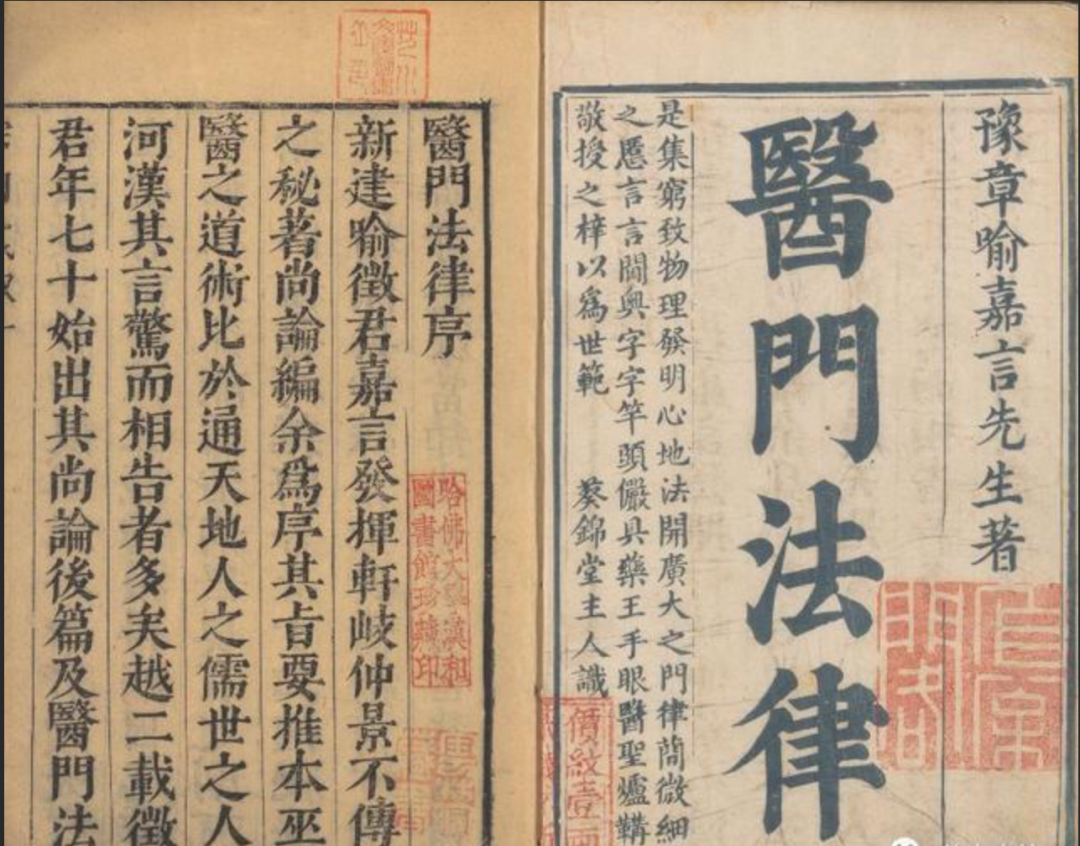 豫章喻嘉言先生著
醫門法律
是集窮致物理發明心地法開廣大之門律簡微細
之慝言言閫奧字字竿頭儼具藥王手眼醫聖爐鞴
敬授之梓以爲世範　葵錦堂主人識
價紋壹兩
醫門法律序
哈佛大學漢和
圖書館珍藏印
新建喻徵君嘉言發揮軒岐仲景不傳
之秘著尚論編余爲序其旨要推本巫
醫之道術比於通天地人之儒世之人
河漢其言驚而相告者多矣越二載徵
君年七十始出其尚論後篇及醫門法